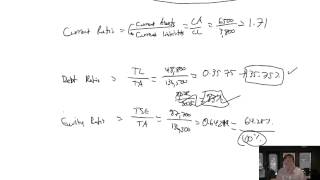 Current Ratio = (Current Assets / Current Liabilities) = CA / CL = 6500 / 3,800 = 1.71
Debt Ratio = TL / TA = 48,800 / 136,500 = 0.3575 → 35.75% ✓
Equity Ratio = TSE / TA = 87,700 / 136,500 = 0.642 = 64.2
100%